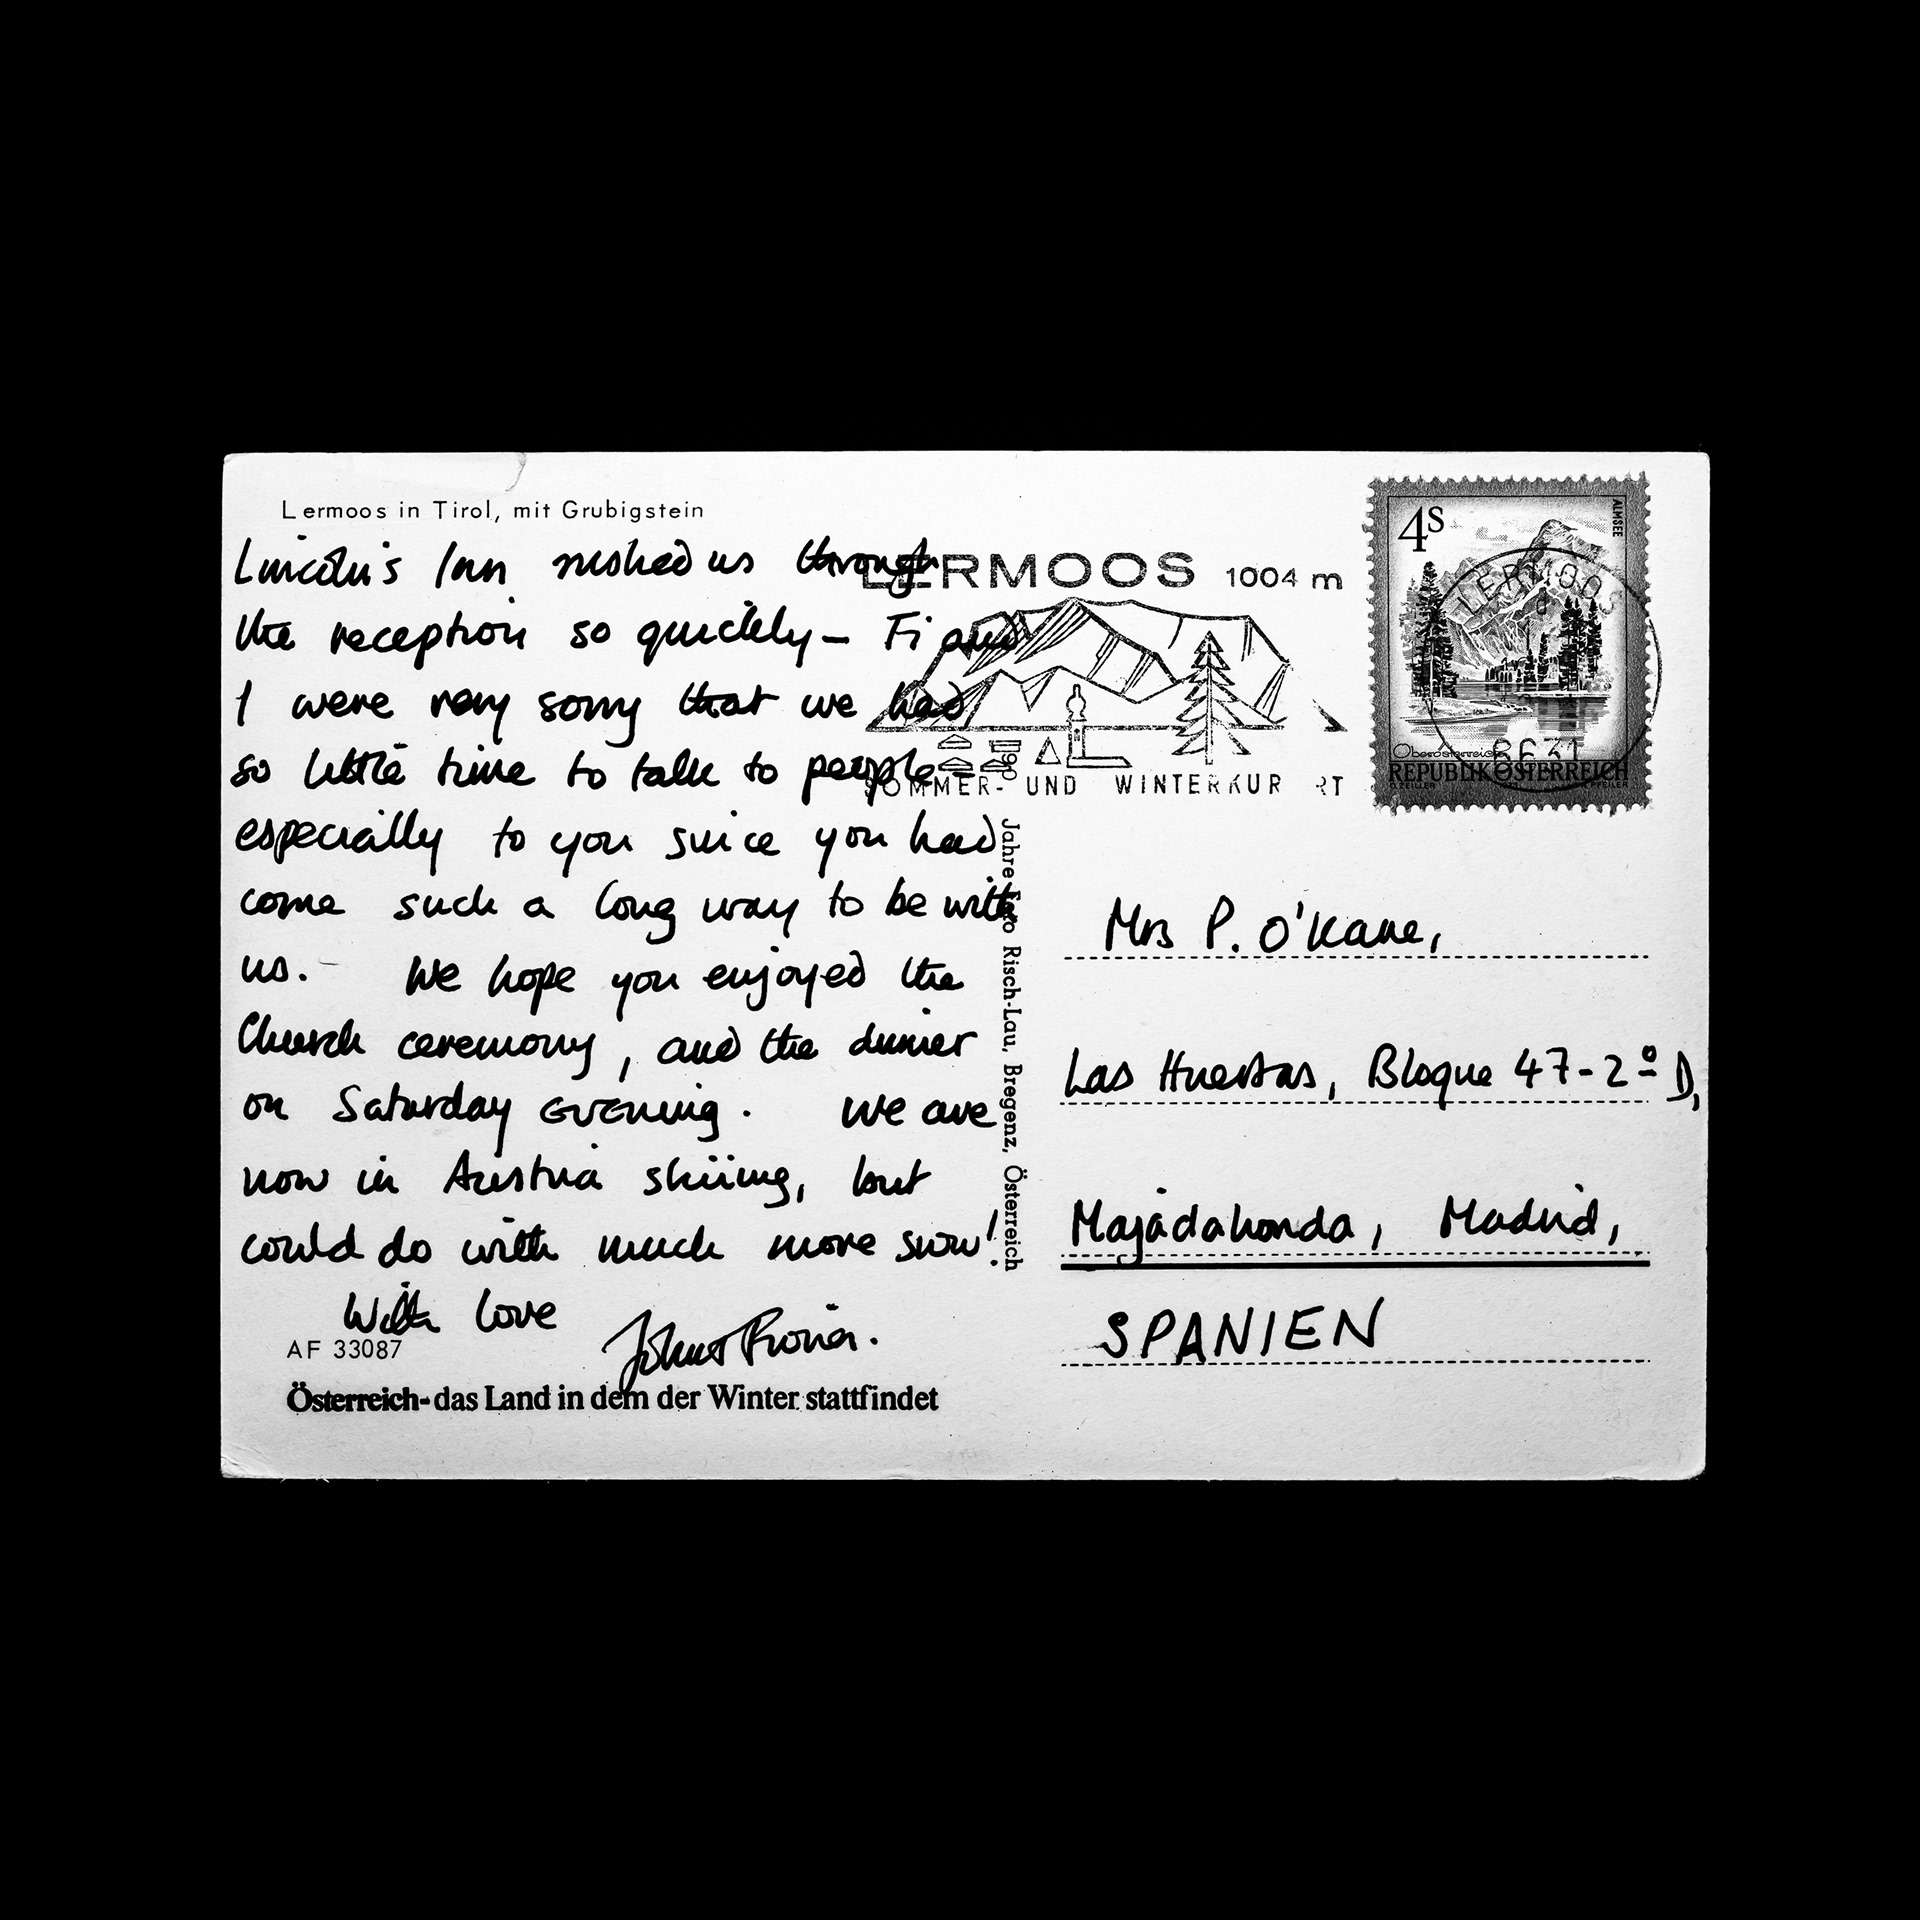 Lermoos in Tirol, mit Grubigstein
Lincoln's Inn rushed us through
the reception so quickly – Fi and
I were very sorry that we had
so little time to talk to people –
especially to you since you had
come such a long way to be with
us. – We hope you enjoyed the
Church ceremony, and the dinner
on Saturday evening. We are
now in Austria skiing, but
could do with much more snow!
With love
John + Fiona.
AF 33087
Österreich - das Land in dem der Winter stattfindet
Jahre Foto Risch-Lau, Bregenz, Österreich
LERMOOS 1004 m
SOMMER- UND WINTERKUR RT
4S
ALMSEE
LERMOOS
6631
Oberösterreich
REPUBLIK ÖSTERREICH
Mrs P. O'Kane,
Las Huertas, Bloque 47-2º D,
Majadahonda, Madrid,
SPANIEN